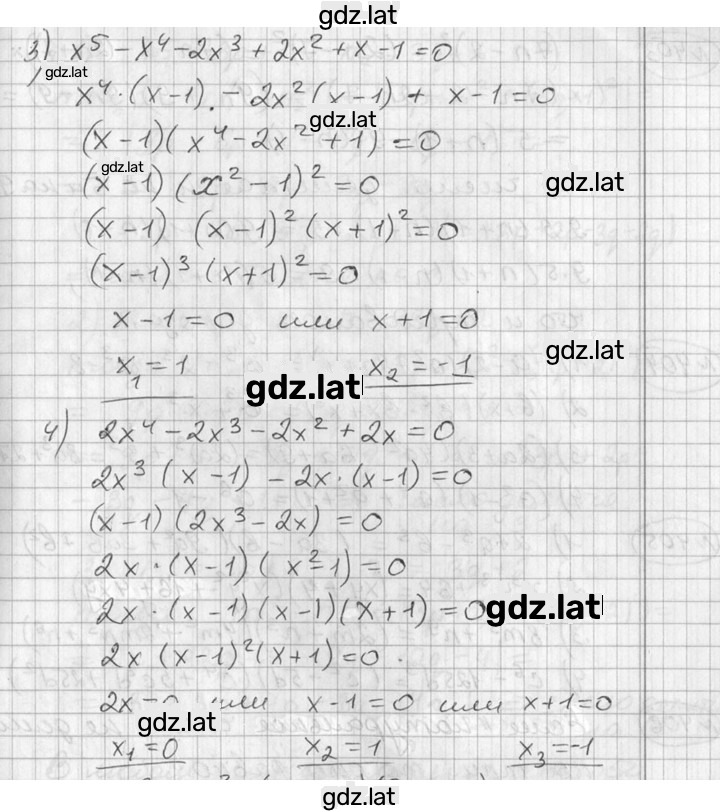 gdz.lat
3) x⁵ - x⁴ - 2x³ + 2x² + x - 1 = 0
gdz.lat
x⁴ · (x-1) - 2x² (x-1) + x-1 = 0
gdz.lat
(x-1)( x⁴ - 2x² + 1) = 0
gdz.lat
(x-1) (x² - 1)² = 0
gdz.lat
(x-1) (x-1)² (x+1)² = 0
(x-1)³ (x+1)² = 0
x - 1 = 0 или x + 1 = 0
gdz.lat
x₁ = 1 x₂ = -1
gdz.lat
4) 2x⁴ - 2x³ - 2x² + 2x = 0
2x³ (x-1) - 2x · (x-1) = 0
(x-1) (2x³ - 2x) = 0
2x · (x-1) (x²-1) = 0
2x · (x-1) (x-1)(x+1) = 0
gdz.lat
2x (x-1)² (x+1) = 0
2x = 0 или x - 1 = 0 или x + 1 = 0
gdz.lat
x₁ = 0 x₂ = 1 x₃ = -1
gdz.lat